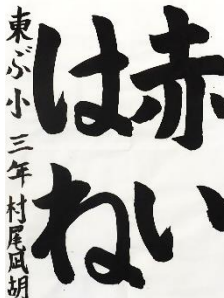 赤い
はね
東ぶ小 三年 村尾凪胡